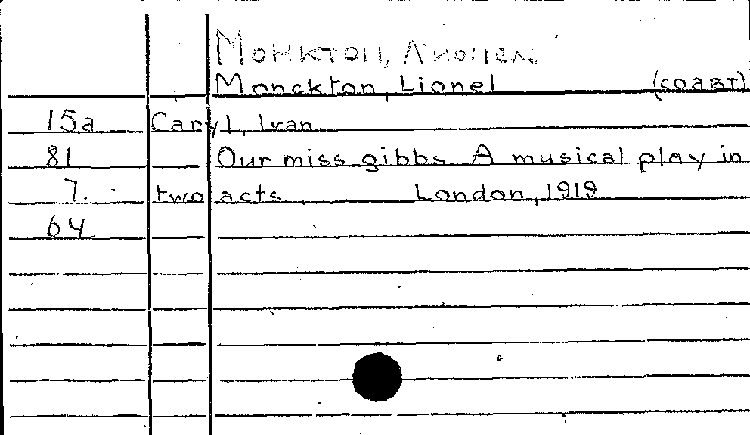 Монктон, Лионел
Monckton, Lionel (соавт)
15a Caryl, Ivan
81 Our miss gibbs. A musical play in
7. two acts London, 1919
64